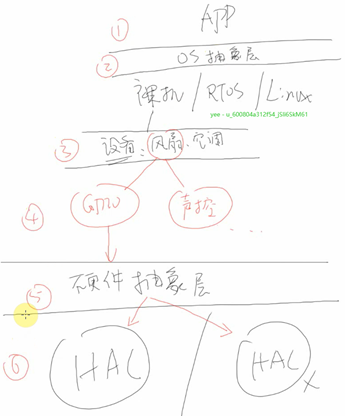 ① APP
② OS抽象层
裸机/RTOS/Linux
yee - u_600804a312f54_jSI6SkM61
③ 设备:风扇、空调
④ GPIO 声控 ...
⑤ 硬件抽象层
⑥ HAL HAL x